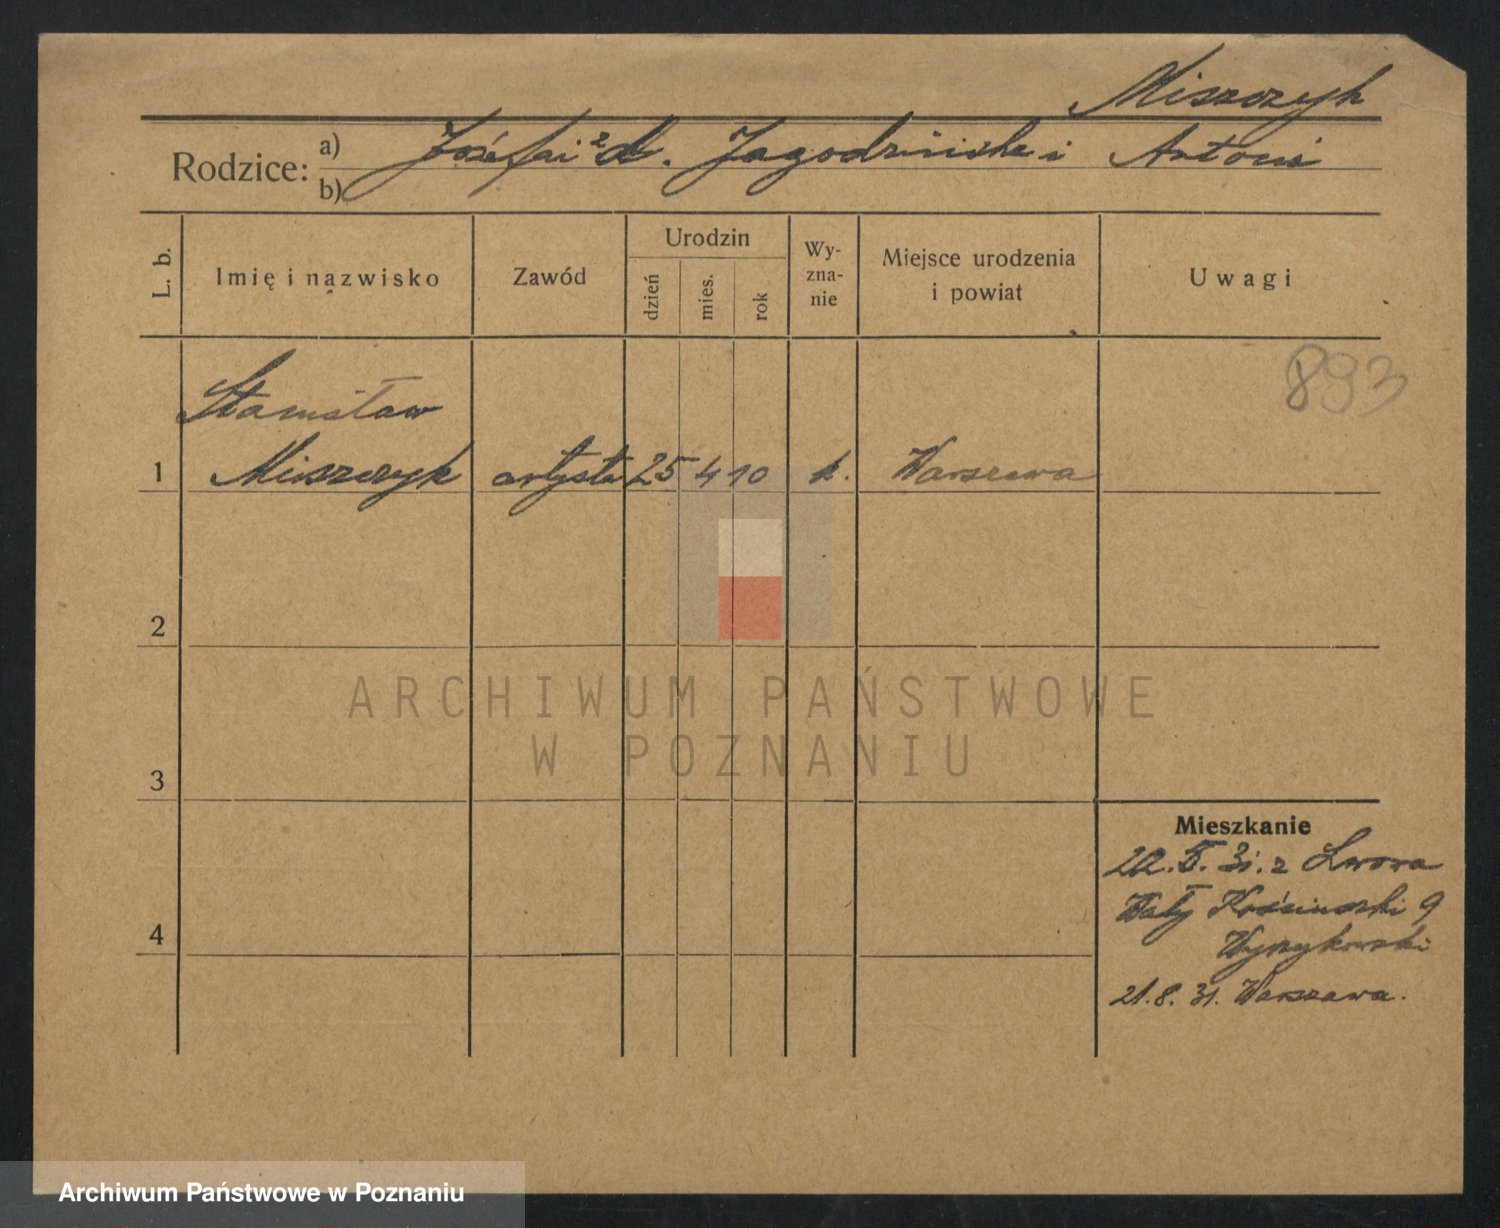 Miszczyk
Rodzice: a) Józefa z d. Jagodzińska i Antoni
b)
L. b.
Imię i nazwisko
Zawód
Urodzin
dzień
mies.
rok
Wy-
zna-
nie
Miejsce urodzenia
i powiat
Uwagi
893
Stanisław
1 Miszczyk artysta 25 4 10 k. Warszawa
2
ARCHIWUM PAŃSTWOWE
W POZNANIU
3
Mieszkanie
31. z Lwowa
Wały Kościuszki 9
4
Wyrzykowski
21.8.31. Warszawa.
Archiwum Państwowe w Poznaniu